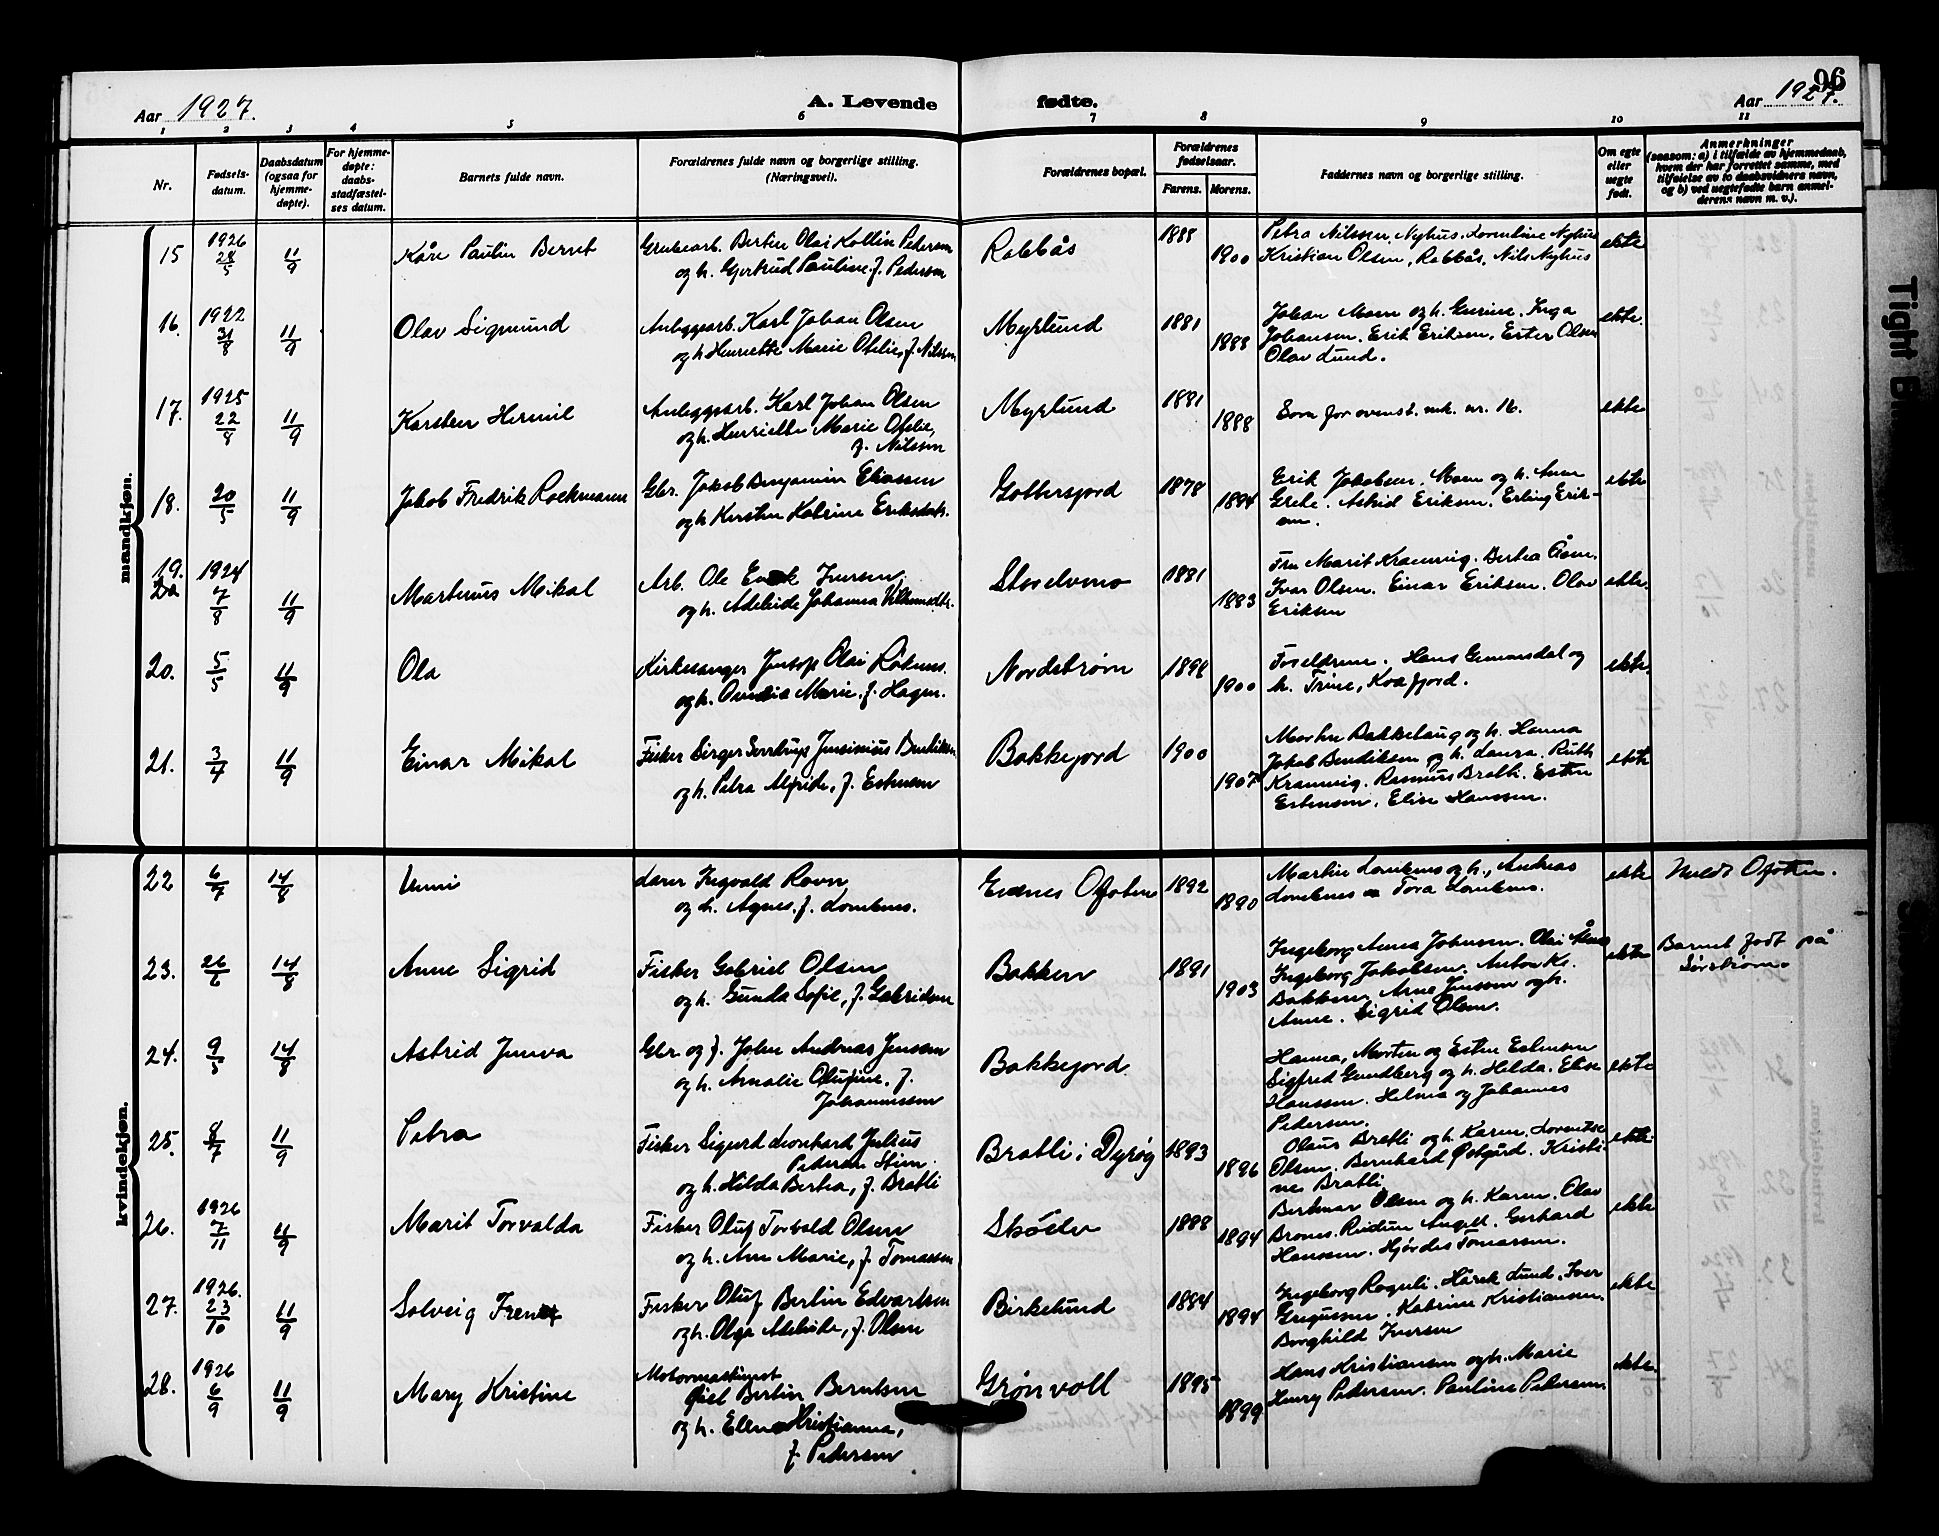 96
Aar 1927.
A. Levende fødte.
Aar 1927.
1 2 3 4 5 6 7 8 9 10 11
Nr.
Fødsels-
datum.
Daabsdatum
(ogsaa for
hjemme-
døpte).
For hjemme-
døpte:
daabs-
stadfæstel-
ses datum.
Barnets fulde navn.
Forældrenes fulde navn og borgerlige stilling.
(Næringsvei.)
Forældrenes bopæl.
Forældrenes
fødselsaar.
Farens. Morens.
Faddernes navn og borgerlige stilling.
Om egte
eller
uegte
født.
Anmerkninger
(saasom: a) i tilfælde av hjemmedaab,
hvem der har forrettet samme, med
tilføielse av to daabsvidners navn,
og b) ved uegtefødte barn anmel-
derens navn m. v.).
mandkjøn.
15 1926 28/5 11/9 Kåre Paulin Bernt
Grubearb. Bertin Olai Kollin Pedersen
og h. Gjertrud Pauline f. Pedersen
Rabbås 1888 1900
Petra Nilssen, Nyhus. Lorentine Nyhus
Kristian Olsen, Rabbås. Nils Nyhus
ekte
16. 1922 31/8 11/9 Olav Sigmund
Anleggsarb. Karl Johan Olsen
og h. Henriette Marie Ofelie, f. Nilssen
Myrlund 1881 1888
Johan Moen og h. Gurine. Inga
Johansen. Erik Eriksen. Ester Olsen
Olav Lund.
ekte.
17. 1925 22/8 11/9 Karsten Hermil
Anleggsarb. Karl Johan Olsen
og h. Henriette Marie Ofelie,
f. Nilssen
Myrlund 1881 1888
Som for ovenst. mk. nr. 16.
ekte
18. 20/5 11/9 Jakob Fredrik Rockmann
Gbr. Jakob Benjamin Eliassen
og h. Kirsten Katrine Eriksdatr.
1878 1884
Erik Jakobsen. Moen og h. Anne
Grete. Astrid Eriksen. Erling Erik-
sen.
ekte
19. 1924 7/8 11/9 Martinus Mikal
Arb. Ole Enok Iversen,
og h. Adeleide Johanna
Storelvmo 1881 1883
Fru Marit Kramvig. Bertea Åsen.
Ivar Olsen. Einar Eriksen. Olav
Eriksen
ekte.
20. 5/5 11/9 Ola
Kirkesanger Olai
og h. Marie f. Hagen.
Nordstrøm 1898 1900
Foreldrene. Hans og
h. Trine, Kvafjord.
ekte.
21. 3/4 11/9 Einar Mikal
Fisker Birger
og h. Petra Alfride, f. Estensen
Bakkejord 1900 1907
Morten Bakkehaug og h. Hanna
Jakob Bendiksen og h. Laura. Ruth
Kramvig. Rasmus Bratli. Esten
Estensen. Elise Hanssen.
ekte
kvindekjøn.
22 6/7 14/8 Unni
Lærer Ingvald Ravn
og h. Agnes f. Lorentsens.
Evenes Ofoten 1892 1890
Martin Lorentsens og h., Andreas
Lorentsens Tora Lorentsens.
ekte
Meldt Ofoten.
23. 26/6 14/8 Anne Sigrid
Fisker Gabriel Olsen
og h. Gunda Sofie, f. Gabrielsen
Bakken 1891 1903
Ingeborg Anna Johnsen. Olai
Ingeborg Jakobsen. Anton K.
Bakken. Arne Jenssen og h.
Anne. Sigrid Olsen.
ekte
Barnet født på
Sørstrøm.
24. 9/5 14/8 Astrid
Gbr. og f. John Andreas Jenssen
og h. Amalie Olufine f.
Johannessen
Bakkejord
Hanna, Morten og Esten Estensen
Sigfred Gundberg og h. Hilda. Elise
Hanssen. Helma og Johannes
Pedersen.
ekte
25. 8/7 11/9 Petra
Fisker Sigurd Leonhard Julius
Pedersen
og h. Hilda Bertea, f. Bratli
Bratli i Dyrøy 1893 1896
Olaus Bratli og h. Karen. Lorentse
Olsen. Bernhard Østgård. Kristi-
ne Bratli.
ekte
26. 1926 7/11 11/9 Marit Torvalda
Fisker Oluf Torvald Olsen
og h. Ane Marie, f. Tomassen
1888 1894
Berthnar Olsen og h. Karen. Olav
Gerhard
Hanssen. Hjørdis Tomassen.
ekte
27. 1926. 23/10 11/9 Solveig Irene
Fisker Oluf Bertin Edvartsen
og h. Olga Adeleide, f. Olsen
Birkelund 1884 1894
Ingeborg Rognli. Hårek Lund. Iver
Gregussen. Katrine Kristiansen.
Borghild Iversen
ekte
28. 1926 6/9 11/9 Mary Kristine
Motormaskinist
Bertin Berntsen
og h. Elena Kristianna,
f. Pedersen
Grønvoll 1895 1899
Hans Kristiansen og h. Marie
Henry Pedersen. Pauline Pedersen.
ekte.
Tight B